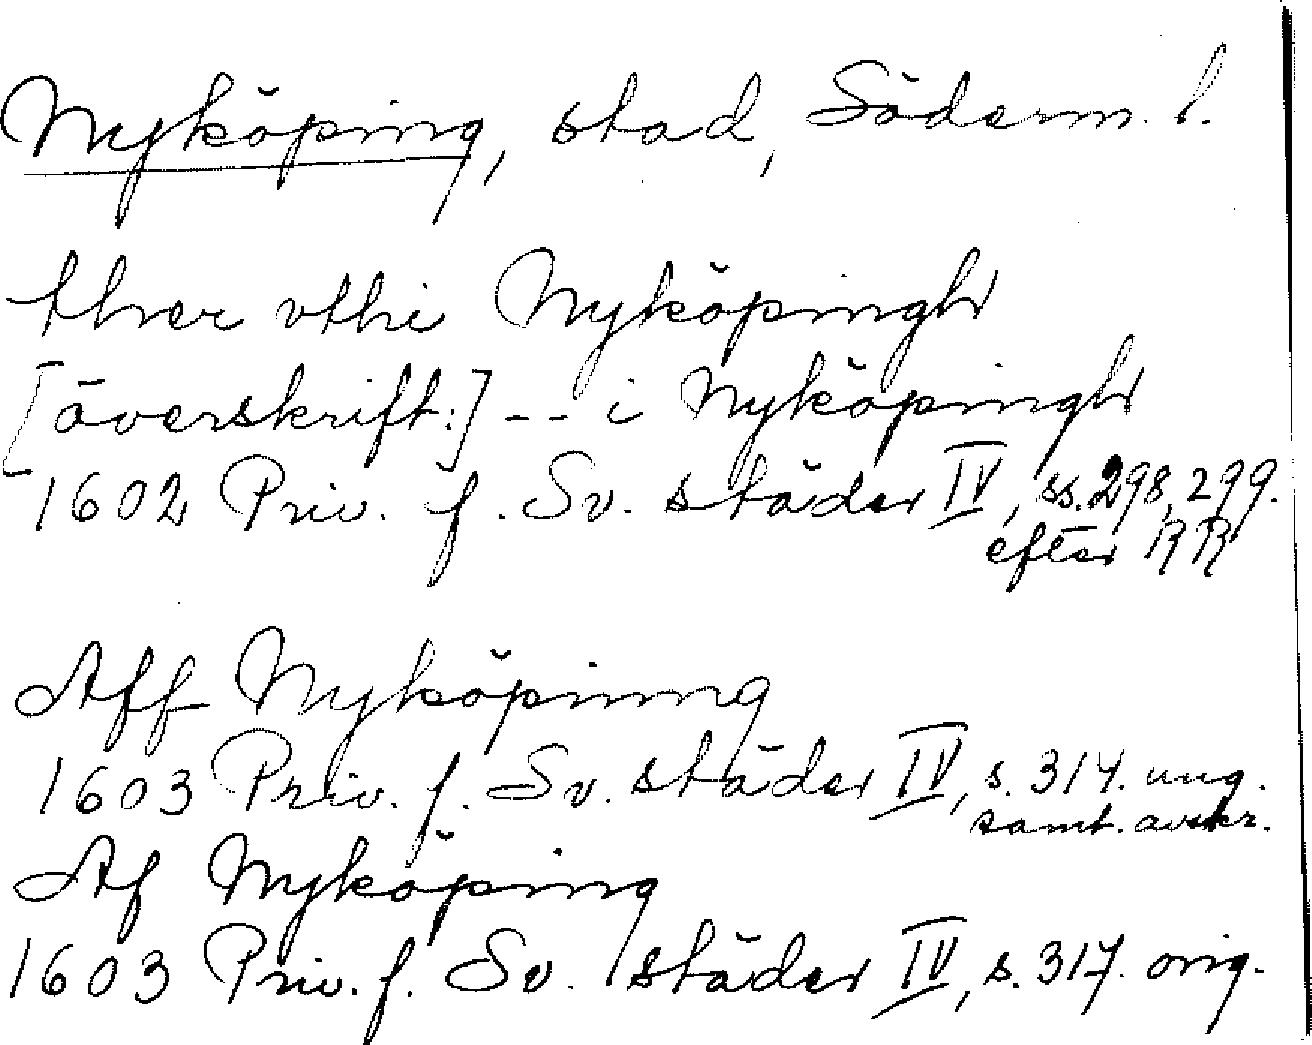 Nyköping, stad, Söderm. l.
ther vthi Nyköpingh
[överskrift:] -- i Nyköpingh
1602 Priv. f. Sv. städer IV, ss. 298, 299.
efter RR
Aff Nyköping
1603 Priv. f. Sv. städer IV, s. 314. ung.
samt. avskr.
Af Nyköping
1603 Priv. f. Sv. städer IV, s. 317. orig.